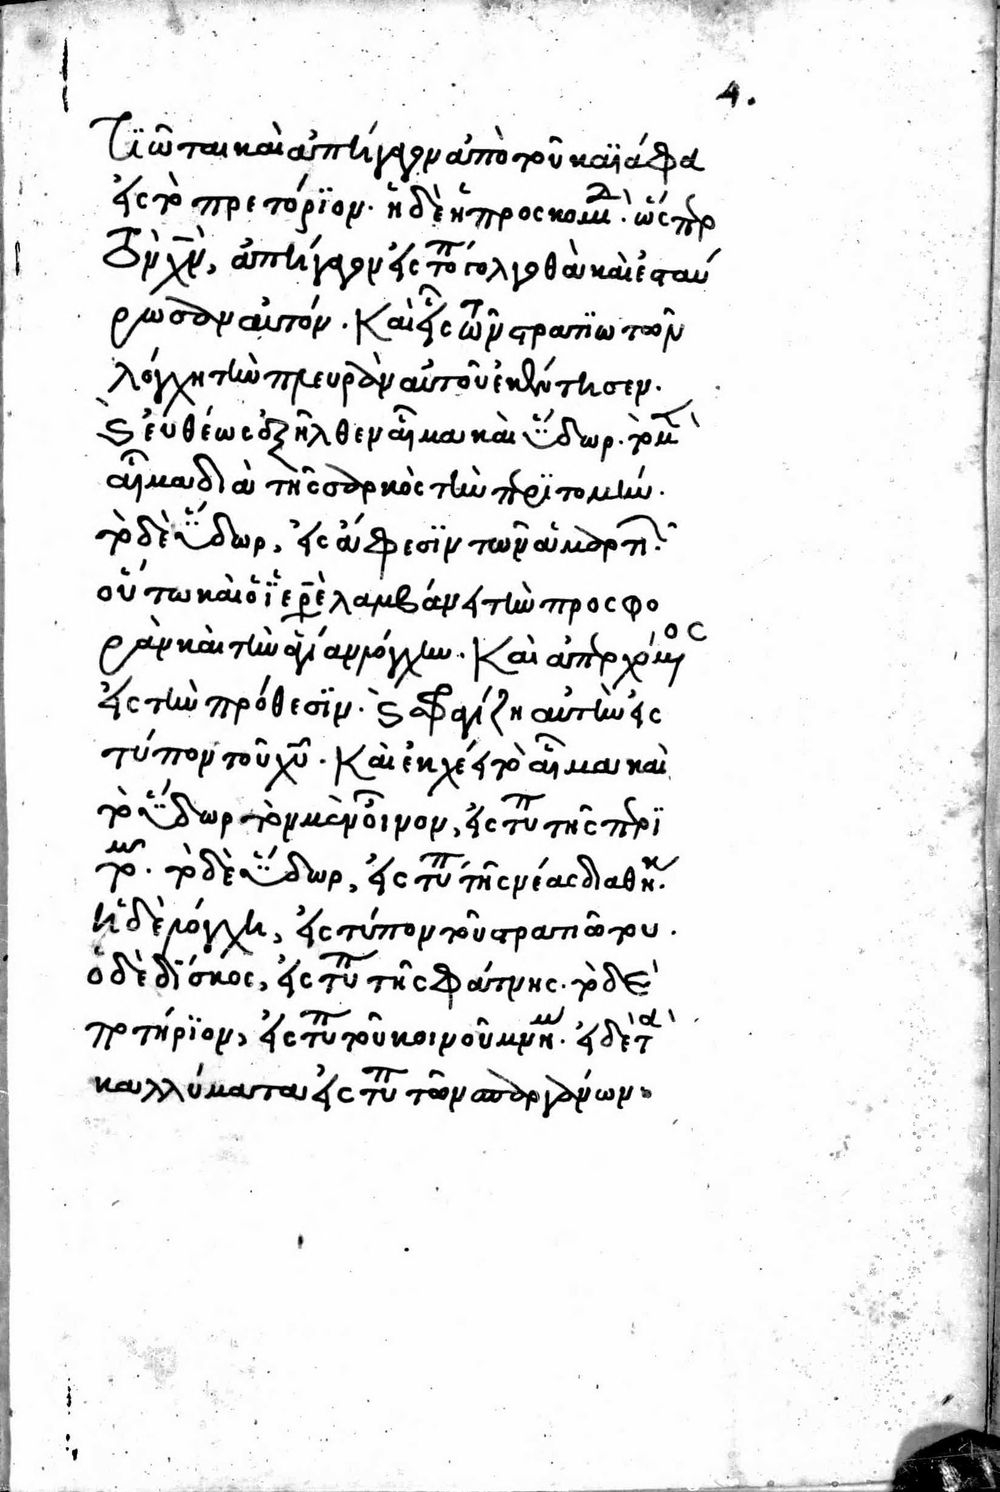 4.
τϊῶται καὶ ἀπήγαγον ἀπὸ τοῦ καϊάφα
εἰς τὸ πρετόριον. ἡ δὲ ἡ προσκομιδ. ὥσπερ
τὸν χν, ἀπήγαγον εἰς τόπ γολγοθὰ καὶ ἐσταύ
ρωσαν αὐτόν. Καὶ εἷς τῶν στρατϊωτῶν
λόγχη τὴν πλευρὰν αὐτοῦ ἐκέντησεν.
ϛ εὐθέως ἐξῆλθεν αἷμα καὶ ὕδωρ. τὸ μ
αἷμα διὰ τῆς σαρκὸς τὴν περϊτομήν.
τὸ δὲ ὕδωρ, εἰς ἄφεσϊν τῶν ἁμαρτι.
οὕτω καὶ ὁ ἱερὲ λαμβάνει τὴν προσφο
ρὰν καὶ τὴν ἁγίαν λόγχην. Καὶ ἀπερχόμ ος
εἰς τὴν πρόθεσϊν. ϛ σφαγίζη αὐτὴν εἰς
τύπον τοῦ χυ. Καὶ ἐκχέει τὸ αἷμα καὶ
τὸ ὕδωρ τὸν μὲν οἶνον, εἰς τύπ τῆς περϊ
τομ. τὸ δὲ ὕδωρ, εἰς τύπ τῆς νέας διαθηκ.
ἡ δὲ λόγχη, εἰς τύπον τοῦ στρατιώτου.
ὁ δὲ δΐσκος, εἰς τύπ τῆς φάτνης. τὸ δὲ
ποτήρϊον, εἰς τύπ τοῦ κοινοῦ μνημ. εἰ δὲ τὰ
καλλύματα εἰς τύπ τῶν σπαργάνων